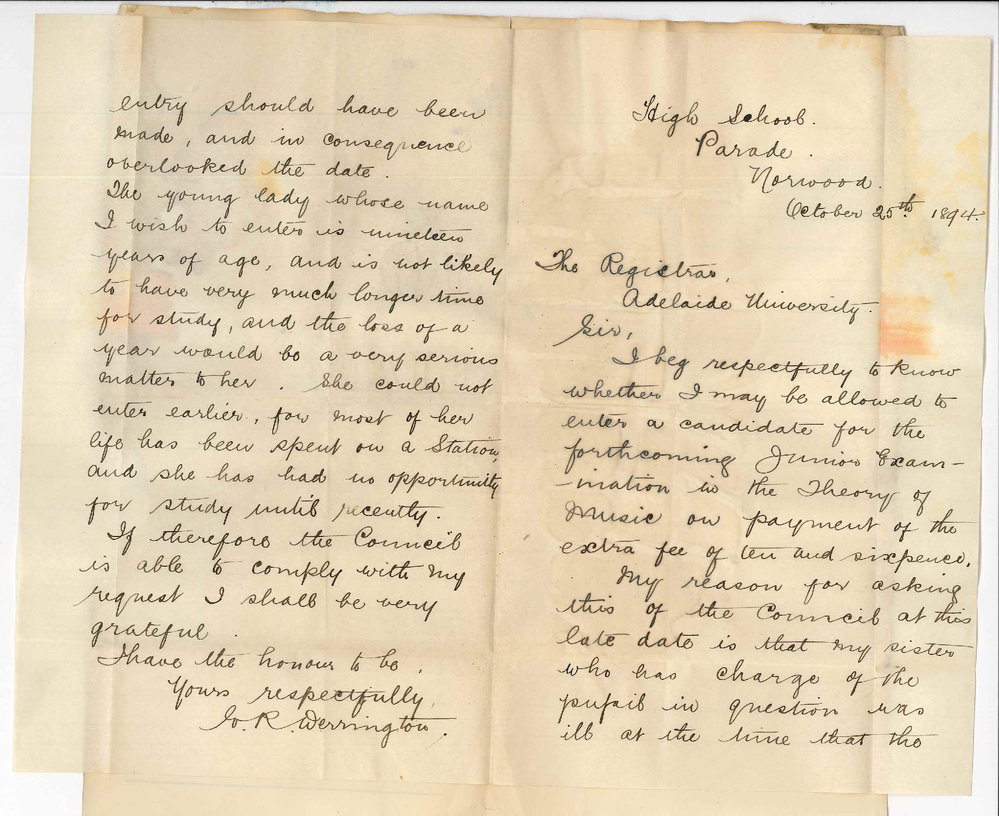 High School.
Parade.
Norwood.
October 25th. 1894.
The Registrar,
Adelaide University.
Sir,
I beg respectfully to know
whether I may be allowed to
enter a candidate for the
forthcoming Junior Exam-
-ination in the Theory of
Music on payment of the
extra fee of ten and sixpence.
My reason for asking
this of the Council at this
late date is that my sister
who has charge of the
pupil in question was
ill at the time that the
entry should have been
made, and in consequence
overlooked the date.
The young lady whose name
I wish to enter is nineteen
years of age, and is not likely
to have very much longer time
for study, and the loss of a
year would be a very serious
matter to her. She could not
enter earlier, for most of her
life has been spent on a Station,
and she has had no opportunity
for study until recently.
If therefore the Council
is able to comply with my
request I shall be very
grateful.
I have the honour to be,
Yours respectfully,
R. Derrington.